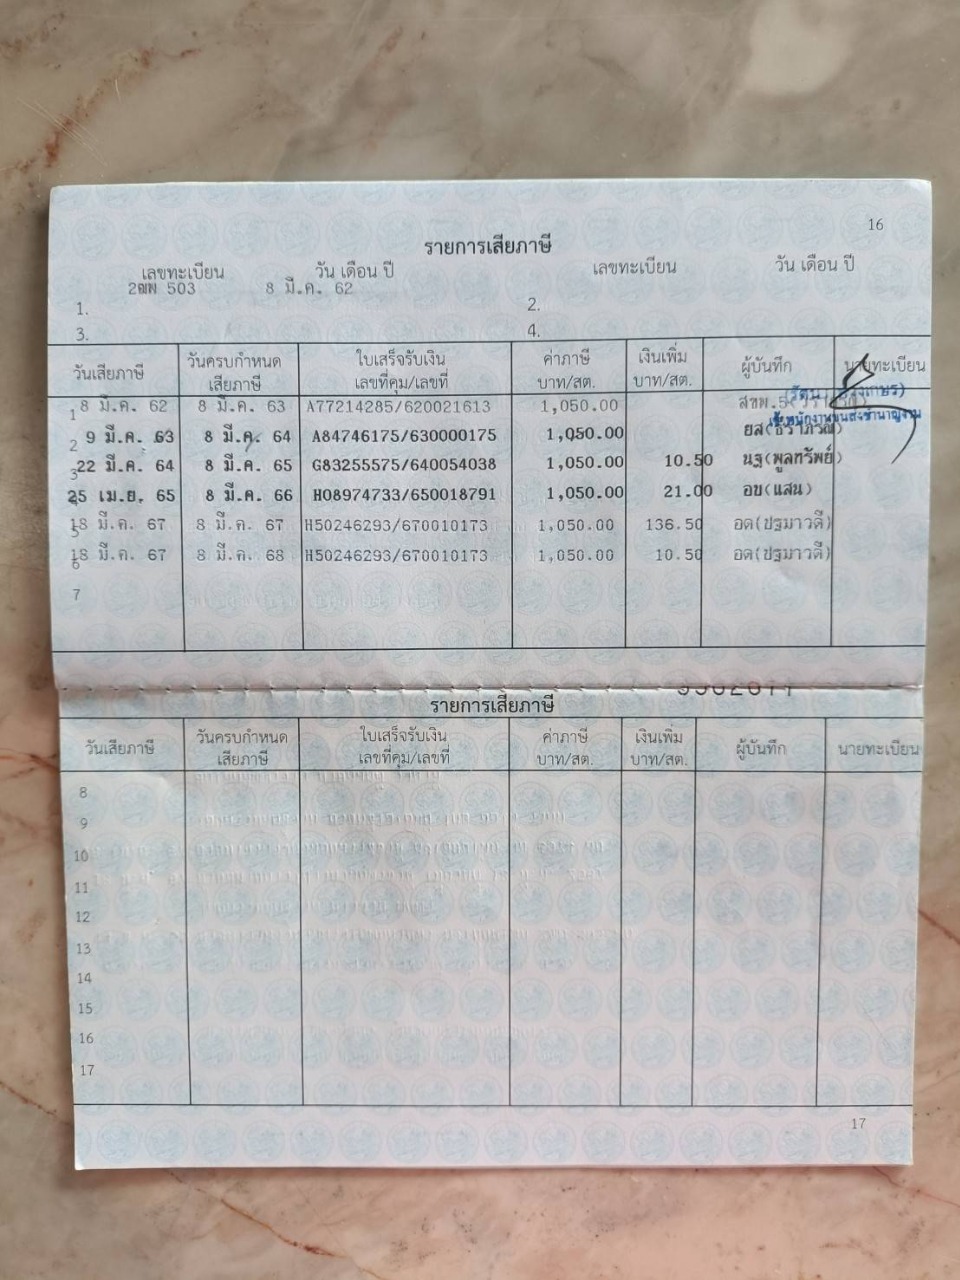 16
รายการเสียภาษี
เลขทะเบียน วัน เดือน ปี เลขทะเบียน วัน เดือน ปี
503 8 มี.ค. 62
1. 2.
3. 4.
วันเสียภาษี วันครบกำหนดเสียภาษี ใบเสร็จรับเงิน เลขที่คุม/เลขที่ ค่าภาษี บาท/สต. เงินเพิ่ม บาท/สต. ผู้บันทึก นายทะเบียน
1 8 มี.ค. 62 8 มี.ค. 63 A77214285/620021613 1,050.00
2 9 มี.ค. 63 8 มี.ค. 64 A84746175/630000175 1,050.00 ยส(ธิราภรณ์)
3 22 มี.ค. 64 8 มี.ค. 65 G83255575/640054038 1,050.00 10.50 นฐ(พูลทรัพย์)
4 25 เม.ย. 65 8 มี.ค. 66 H08974733/650018791 1,050.00 21.00 อข(แสน)
5 18 มี.ค. 67 8 มี.ค. 67 H50246293/670010173 1,050.00 136.50 อด(ปฐมาวดี)
6 18 มี.ค. 67 8 มี.ค. 68 H50246293/670010173 1,050.00 10.50 อด(ปฐมาวดี)
7
รายการเสียภาษี
วันเสียภาษี วันครบกำหนดเสียภาษี ใบเสร็จรับเงิน เลขที่คุม/เลขที่ ค่าภาษี บาท/สต. เงินเพิ่ม บาท/สต. ผู้บันทึก นายทะเบียน
8
9
10
11
12
13
14
15
16
17
17